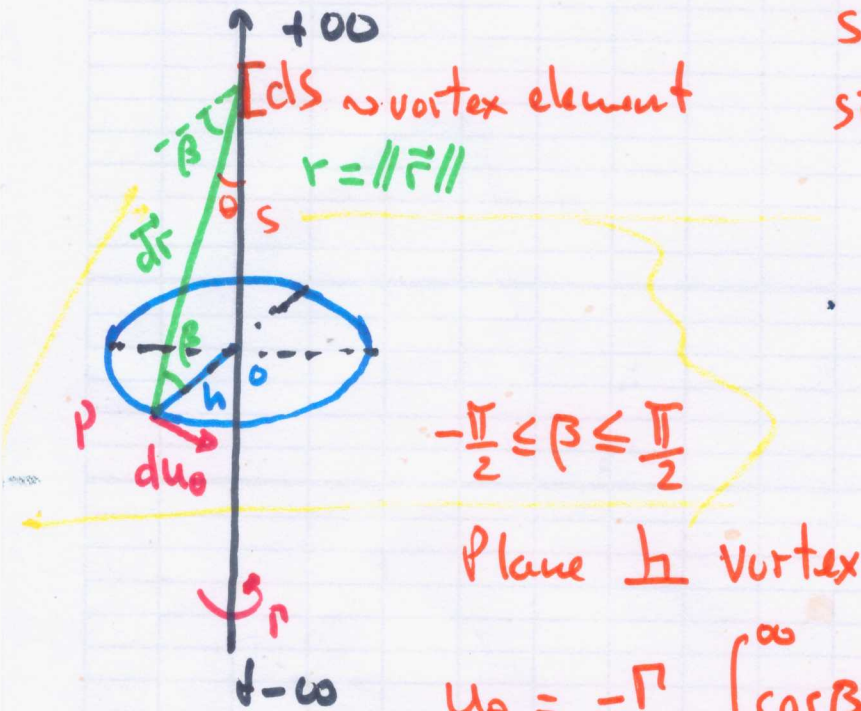 +∞
ds ~ vortex element
r = ||r⃗||
β
θ
s
dr⃗
β
h
o
P
duθ
-π/2 ≤ β ≤ π/2
Plane ⊥ vortex
Γ
-∞
uθ = -Γ ∫^∞ cosβ